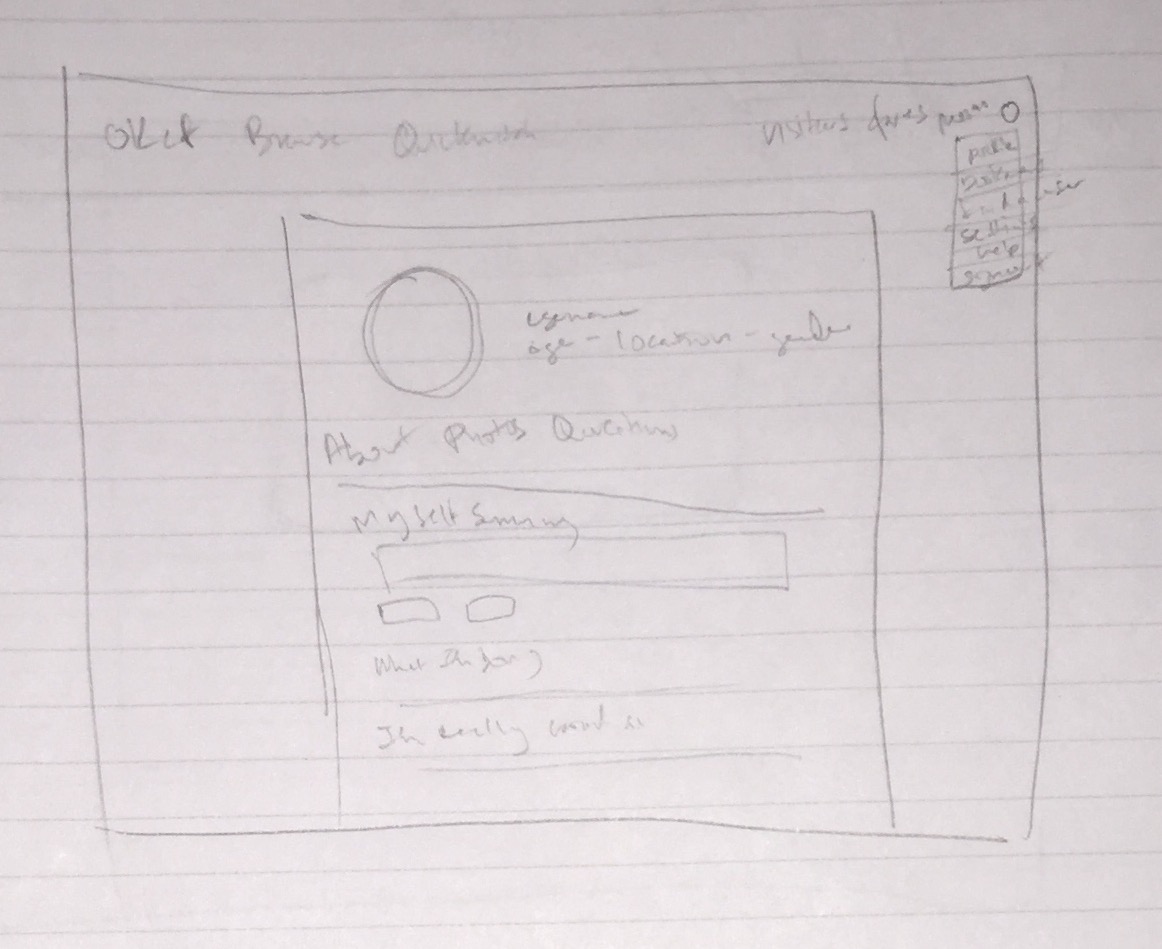 OKCt Browse Quickmatch
Visitors faves
profile
settings
help
username
age - location - gender
About Photos Questions
My Self Summary
What Im doing
Im really good at